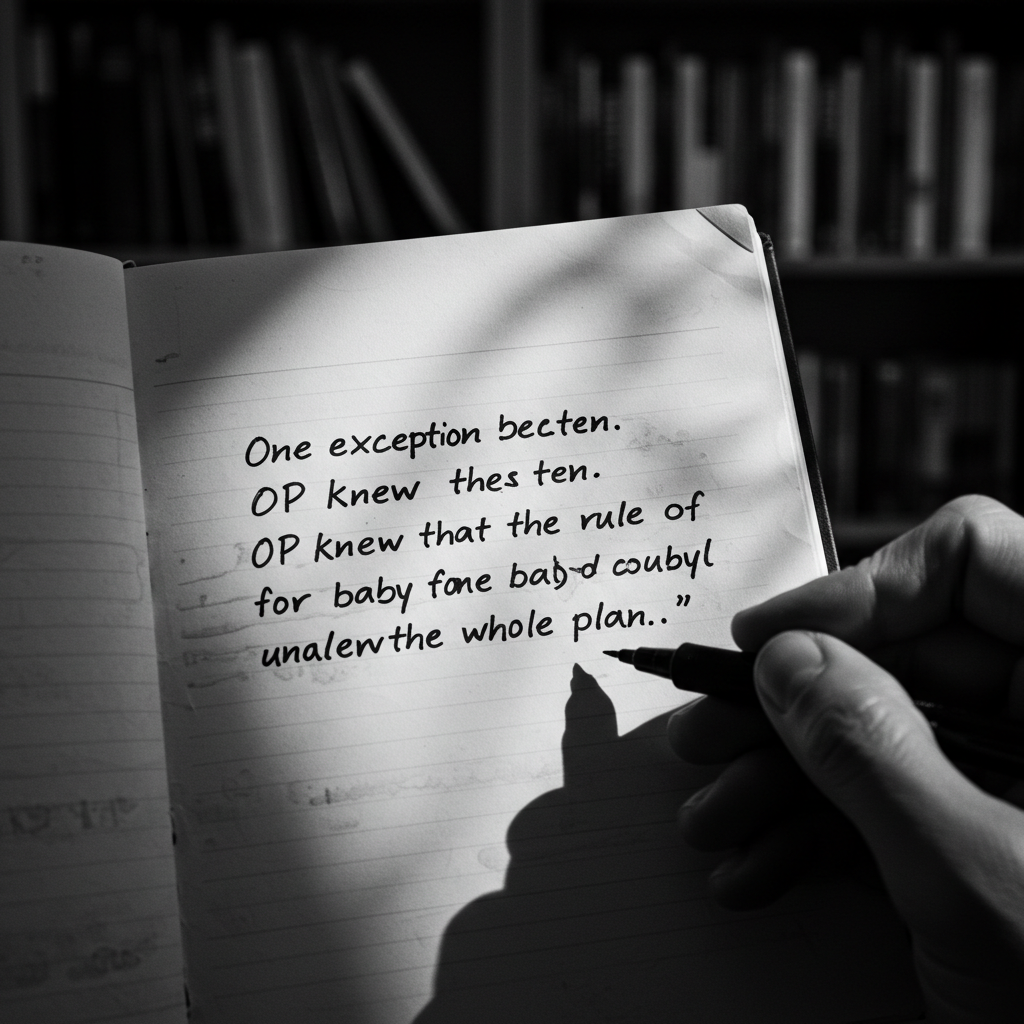 One exception becten.
OP knew thes ten.
OP knew that the rule of
for baby fone coubyl
unalerwthe whole plan..”